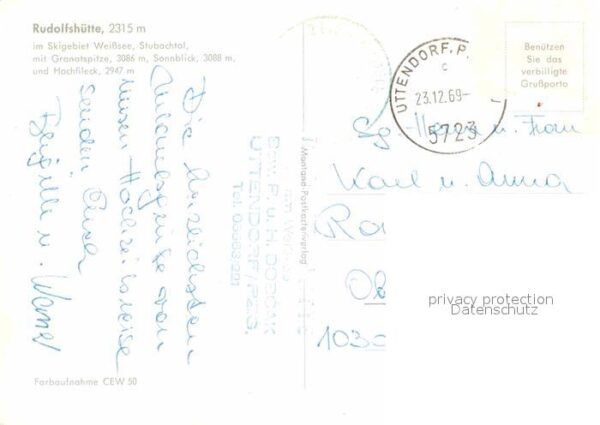 Rudolfshütte, 2315 m
im Skigebiet Weißsee, Stubachtal,
mit Granatspitze, 3086 m, Sonnblick, 3088 m,
und Hochfileck, 2947 m
Die herzlichsten
Urlaubsgrüße von
unserer Hochzeitsreise
senden Euch
Brigitte u. Werner
Bew. P. u. H. DOPCAK
UTTENDORF/PZG.
Tel. 06563/221
Postkartenverlag
UTTENDORF, P.
c
23.12.69-
5723
Benützen
Sie das
verbilligte
Grußporto
Sg. Herrn u. Frau
Karl u. Anna
Ro
Ob
1030
privacy protection
Datenschutz
Farbaufnahme CEW 50